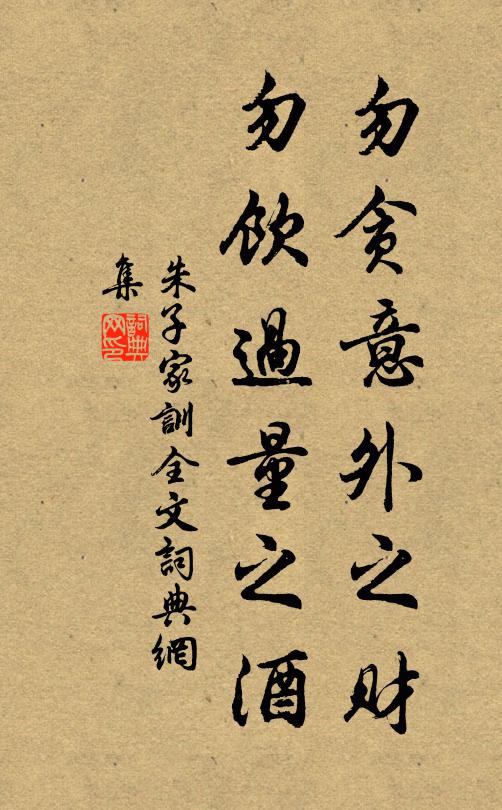 勿貪意外之財
勿飲過量之酒
朱子家訓全文詞典網
集
詞典
网印